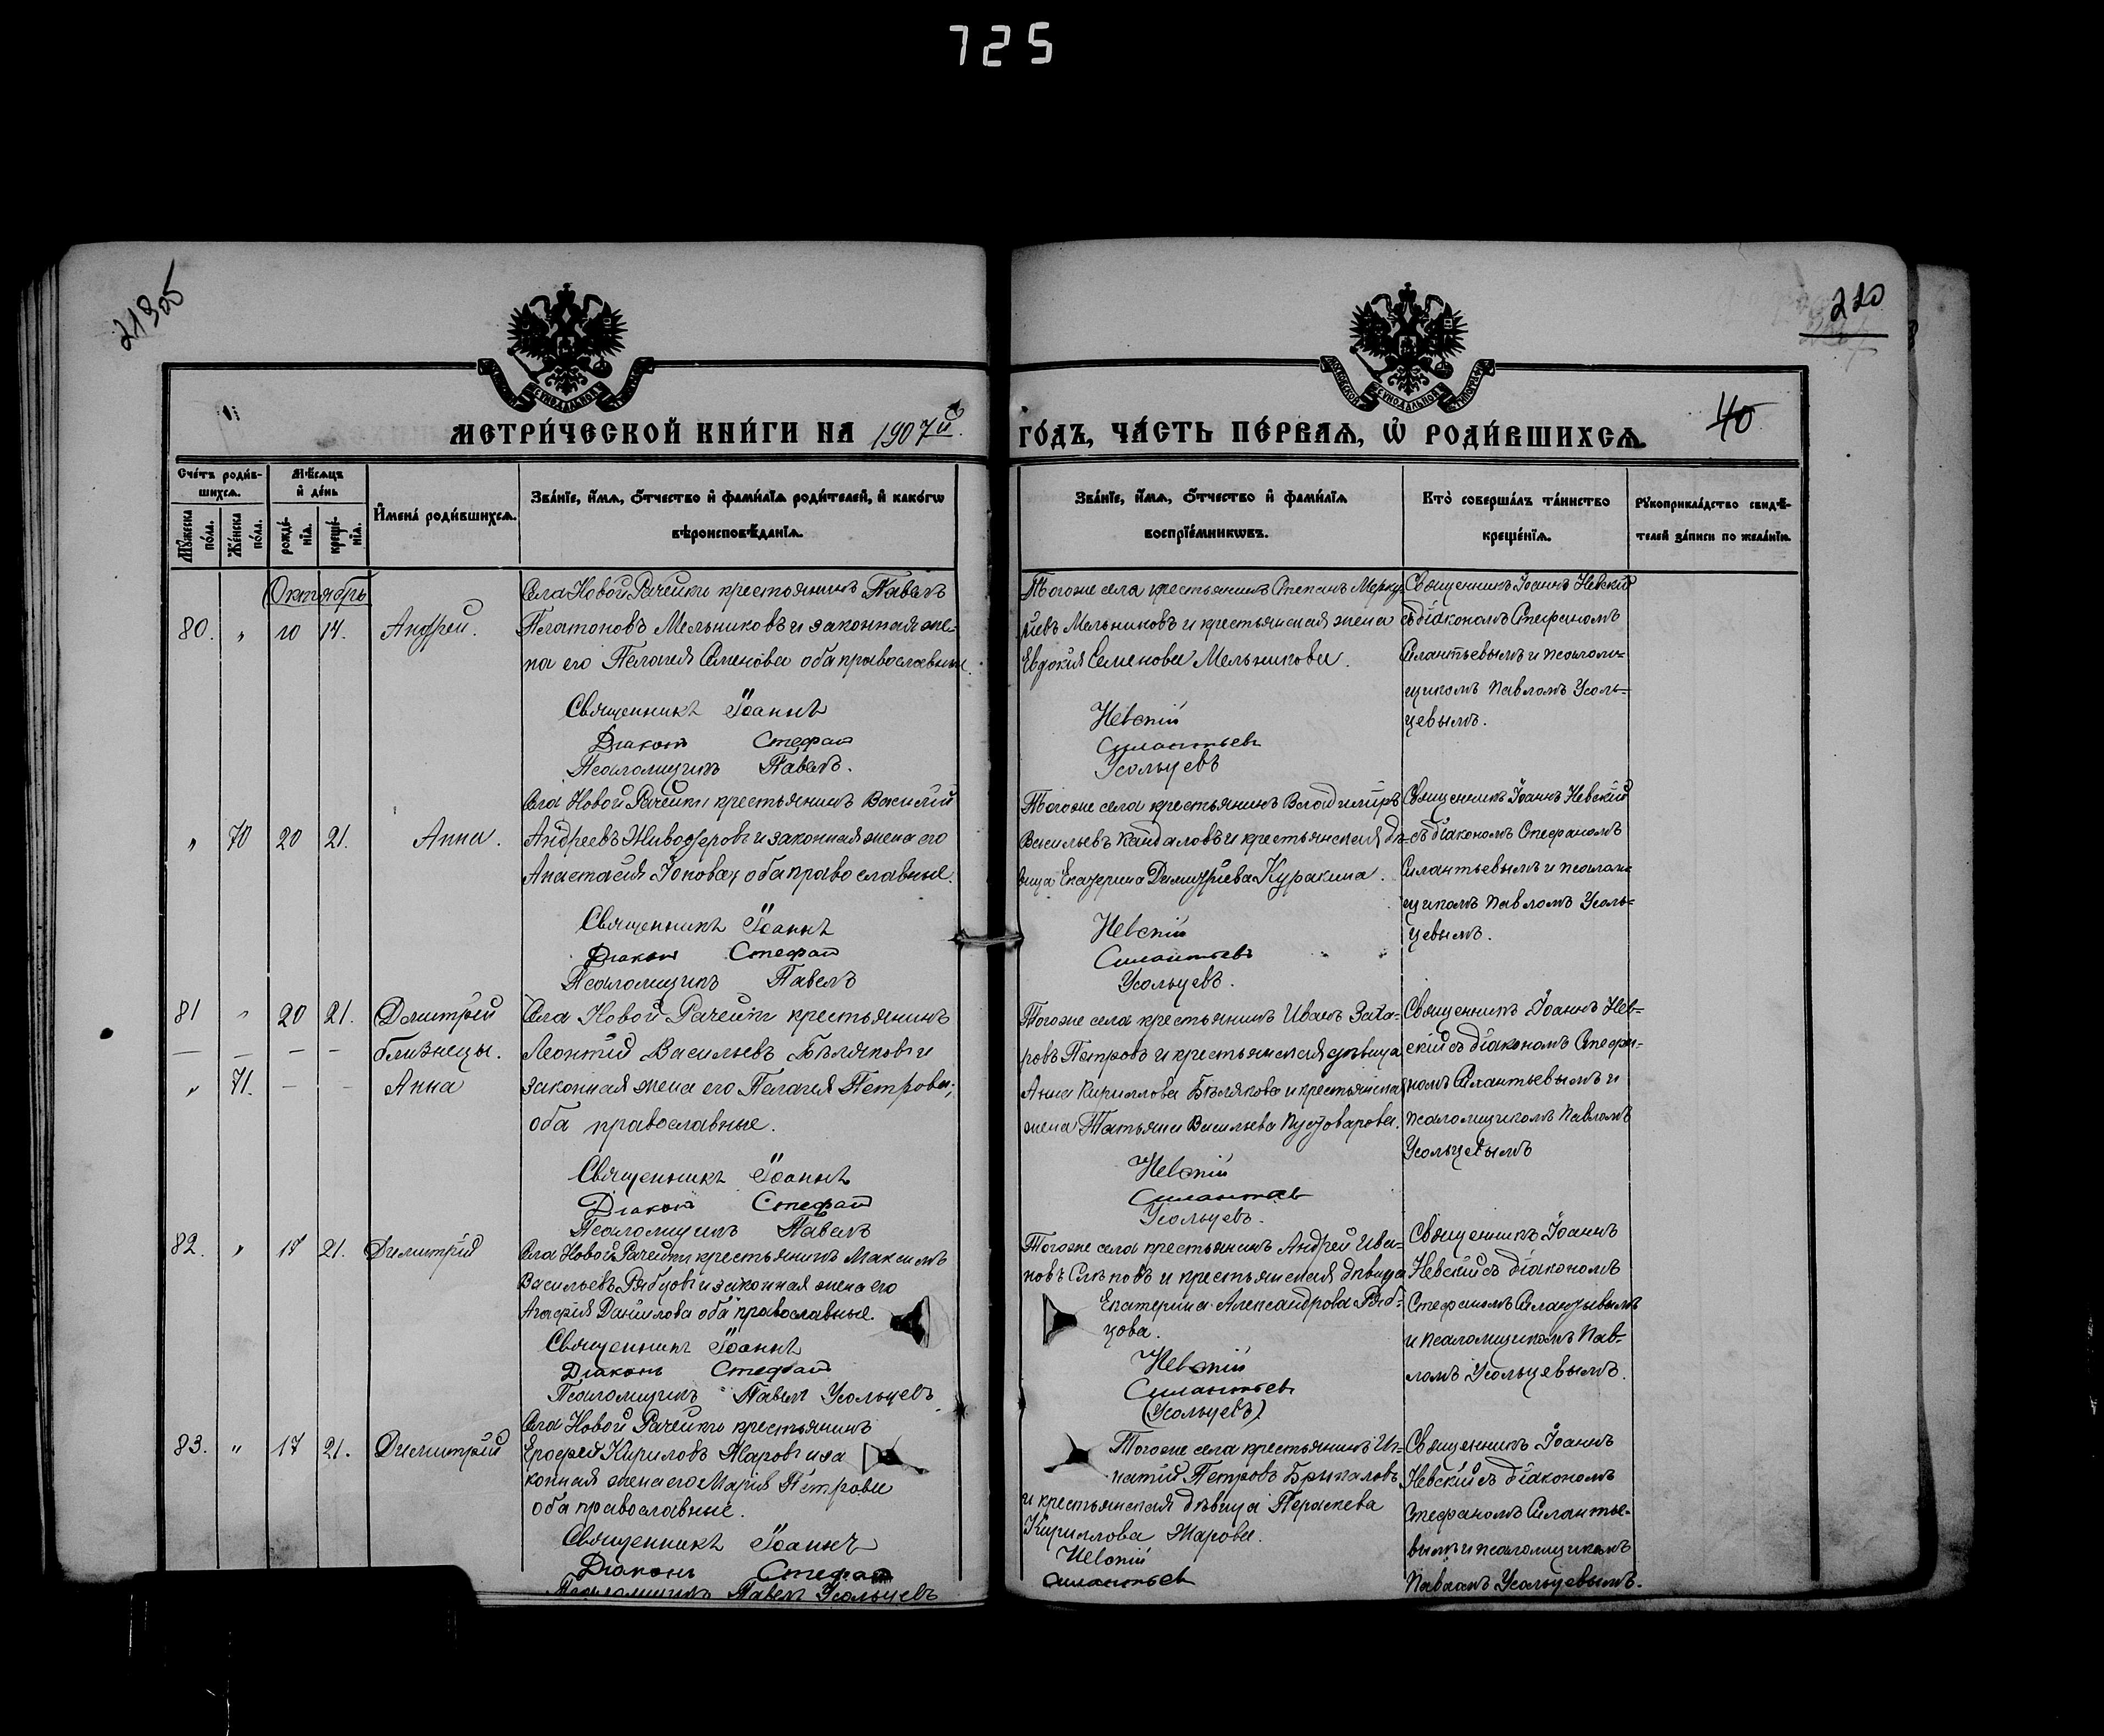 725
219об
220
МЕТРИ́ЧЕСКОЙ КНИ́ГИ НА 1907й
ГО́ДЪ, ЧА́СТЬ ПЕ́РВАЯ, Ѡ҆ РОДИ́ВШИХСѦ.
40
Сче́тъ роди́в-
шихсѧ.
Мѣ́сѧцъ
и҆ де́нь
И҆мена̀ роди́вшихсѧ.
Зва́нїе, и҆́мѧ, ѻ҆́тчество и҆ фами́лїѧ роди́телей, и҆ како́гѡ
вѣроисповѣ́данїѧ.
Мꙋ́жеска по́ла.
Же́нска по́ла.
рожде́-
нїѧ.
креще́-
нїѧ.
Зва́нїе, и҆́мѧ, ѻ҆́тчество и҆ фами́лїѧ
воспрїе́мникѡвъ.
Кто̀ соверша́лъ та́инство
креще́нїѧ.
Рꙋкоприкла́дство свидѣ́-
телей за́писи по жела́нїю.
Октябрь
80. " 10 14. Андрей.
Села Новой Рачейки крестьянинъ Павелъ
Платоновъ Мельниковъ и законная же-
на его Пелагея Семенова оба православные.
Священникъ Іоаннъ
Діаконъ Стефан
Псаломщикъ Павелъ.
Тогоже села крестьянинъ Степанъ Мерку-
рьевъ Мельниковъ и крестьянская жена
Евдокія Семенова Мельникова.
Невскій
Силантьевъ
Усольцевъ
Священникъ Іоаннъ Невскій
съ діакономъ Стефаномъ
Силантьевымъ и псалом-
щикомъ Павломъ Усоль-
цевымъ.
" 70 20 21. Анна.
Села Новой Рачейки крестьянинъ Василій
Андреевъ Живодеровъ и законная жена его
Анастасія Іонова, оба православные.
Священникъ Іоаннъ
Діакон Стефан
Псаломщикъ Павелъ
Тогоже села крестьянинъ Владиміръ
Васильевъ Кандаловъ и крестьянская дѣ-
вица Екатерина Димитріева Куракина.
Невскій
Силантьевъ
Усольцевъ.
Священникъ Іоаннъ Невскій
съ діакономъ Стефаномъ
Силантьевымъ и псалом-
щикомъ Павломъ Усоль-
цевымъ.
81 " 20 21. Димитрій
— — — — близнецы.
" 71. — — Анна
Села Новой Рачейки крестьянинъ
Леонтій Васильевъ Бѣляковъ и
законная жена его Пелагея Петрова;
оба православные.
Священникъ Іоаннъ
Діакон Стефан
Псаломщикъ Павелъ
Тогоже села крестьянинъ Иванъ Заха-
ровъ Петровъ и крестьянская дѣвица
Анна Кириллова Бѣлякова и крестьянская
жена Татьяна Васильева Пустоварова.
Невскій
Силантьев
Усольцевъ.
Священникъ Іоаннъ Нев-
скій съ діакономъ Стефа-
номъ Силантьевымъ и
псаломщикомъ Павломъ
Усольцевымъ
82. " 17 21. Димитрій
Села Новой Рачейки крестьянинъ Максимъ
Васильевъ Рябцовъ и законная жена его
Агафія Данилова оба православные.
Священникъ Іоаннъ
Діаконъ Стефан
Псаломщикъ Павелъ Усольцевъ
Тогоже села крестьянинъ Андрей Ива-
новъ Слѣповъ и крестьянская дѣвица
Екатерина Александрова Ряб-
цова.
Невскій
Силантьев
(Усольцевъ)
Священникъ Іоаннъ
Невскій съ діакономъ
Стефаномъ Силантьевымъ
и псаломщикомъ Пав-
ломъ Усольцевымъ.
83. " 17 21. Димитрій
Села Новой Рачейки крестьянинъ
Ерофей Кириловъ Жаровъ и за
конная жена его Марія Петрова
оба православные.
Священникъ Іоаннъ
Діаконъ Стефан
Псаломщикъ Павелъ Усольцевъ
Тогоже села крестьянинъ Иг-
натій Петровъ Брыкаловъ
и крестьянская дѣвица Параскева
Кириллова Жарова.
Невскій
Силантьев
Священникъ Іоаннъ
Невскій съ діакономъ
Стефаномъ Силантье-
вымъ и псаломщикомъ
Павломъ Усольцевымъ.